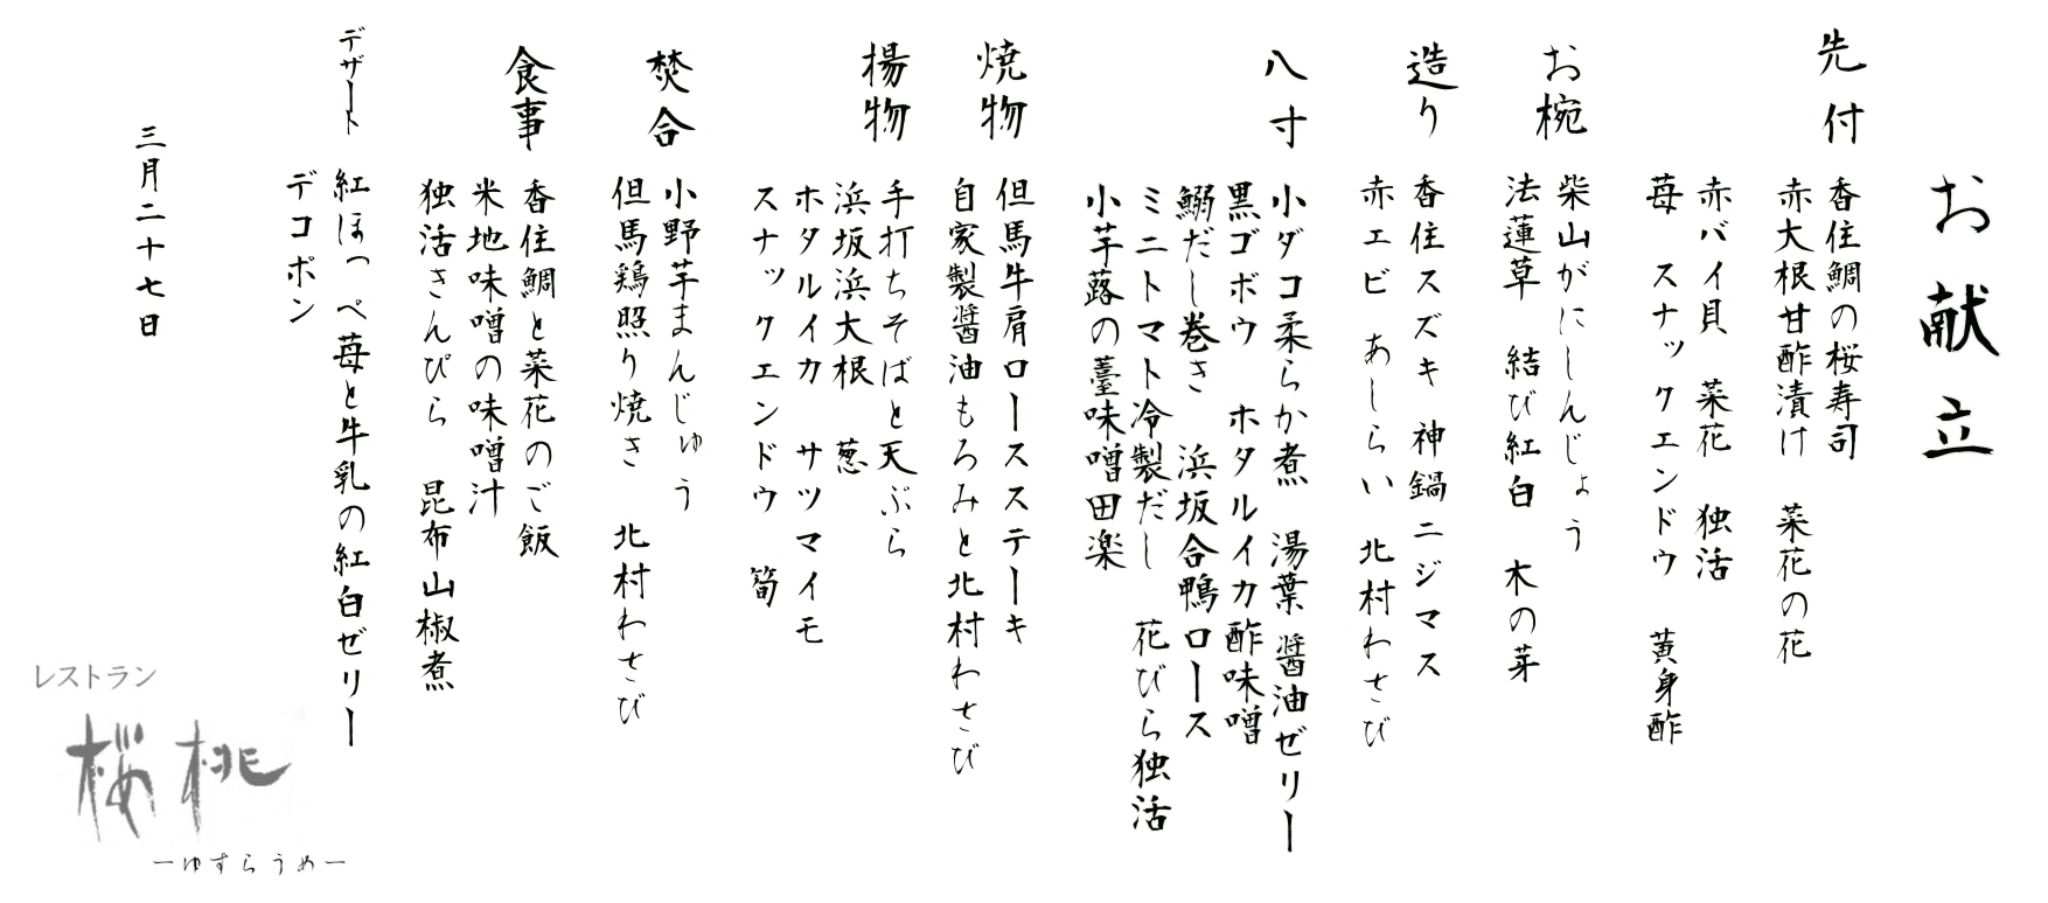 お献立
先付
香住鯛の桜寿司
赤大根甘酢漬け 菜花の花
赤バイ貝 菜花 独活
苺 スナックエンドウ 黄身酢
お椀
柴山がにしんじょう
法蓮草 結び紅白 木の芽
造り
香住スズキ 神鍋ニジマス
赤エビ あしらい 北村わさび
八寸
小ダコ柔らか煮 湯葉 醤油ゼリー
黒ゴボウ ホタルイカ酢味噌
鰯だし巻き 浜坂合鴨ロース
ミニトマト冷製だし 花びら独活
小芋蕗の薹味噌田楽
焼物
但馬牛肩ロースステーキ
自家製醤油もろみと北村わさび
楊物
手打ちそばと天ぷら
浜坂浜大根 葱
ホタルイカ サツマイモ
スナックエンドウ 筍
焚合
小野芋まんじゅう
但馬鶏照り焼き 北村わさび
食事
香住鯛と菜花のご飯
米地味噌の味噌汁
独活きんぴら 昆布山椒煮
デザート
紅ほっぺ苺と牛乳の紅白ゼリー
デコポン
三月二十七日
レストラン
桜桃
ーゆすらうめー